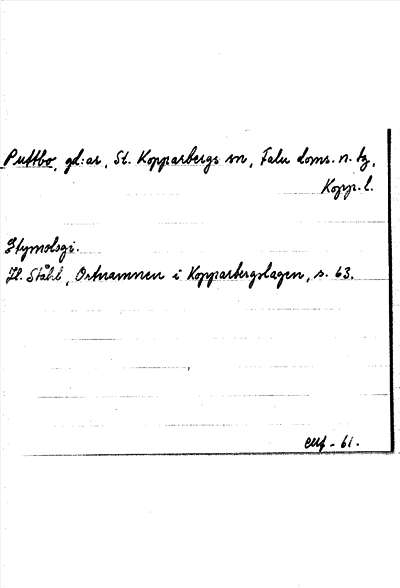 Puttbo, gd:ar, St. Kopparbergs sn, Falu doms. n. tg,
Kopp. l.
Etymologi.
H. Ståhl, Ortnamnen i Kopparbergslagen, s. 63.
-61.